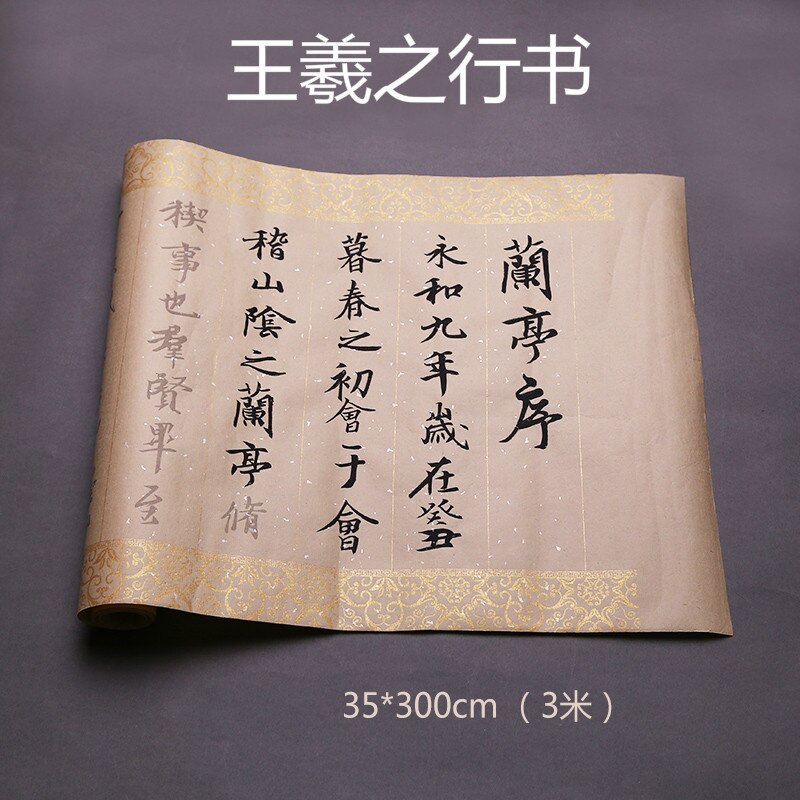 王羲之行书
蘭亭序
永和九年歲在癸丑
暮春之初會于會
稽山陰之蘭亭脩
禊事也羣賢畢至
35*300cm（3米）